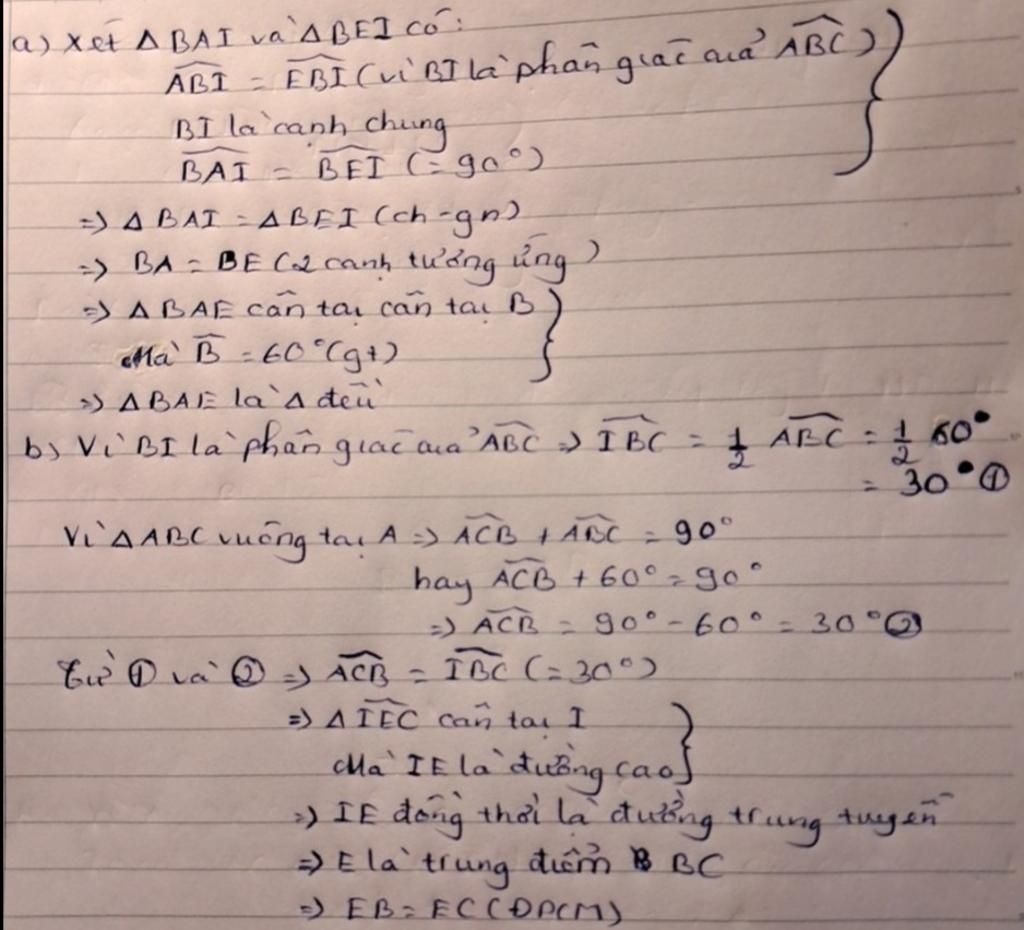 a) Xét Δ BAI và Δ BEI có:
ABI = EBI (vì BI là phân giác của ABC)
BI là cạnh chung
BAI = BEI (= 90°)
=> Δ BAI = Δ BEI (ch - gn)
=> BA = BE (2 cạnh tương ứng)
=> Δ BAE cân tại cân tại B
Mà B = 60° (gt)
=> Δ BAE là Δ đều
b) Vì BI là phân giác của ABC => IBC = 1/2 ABC = 1/2 60°
= 30° ①
Vì Δ ABC vuông tại A => ACB + ABC = 90°
hay ACB + 60° = 90°
=> ACB = 90° - 60° = 30° ②
Từ ① và ② => ACB = IBC (= 30°)
=> Δ IEC cân tại I
Mà IE là đường cao
=> IE đồng thời là đường trung tuyến
=> E là trung điểm B BC
=> EB = EC (ĐPCM)